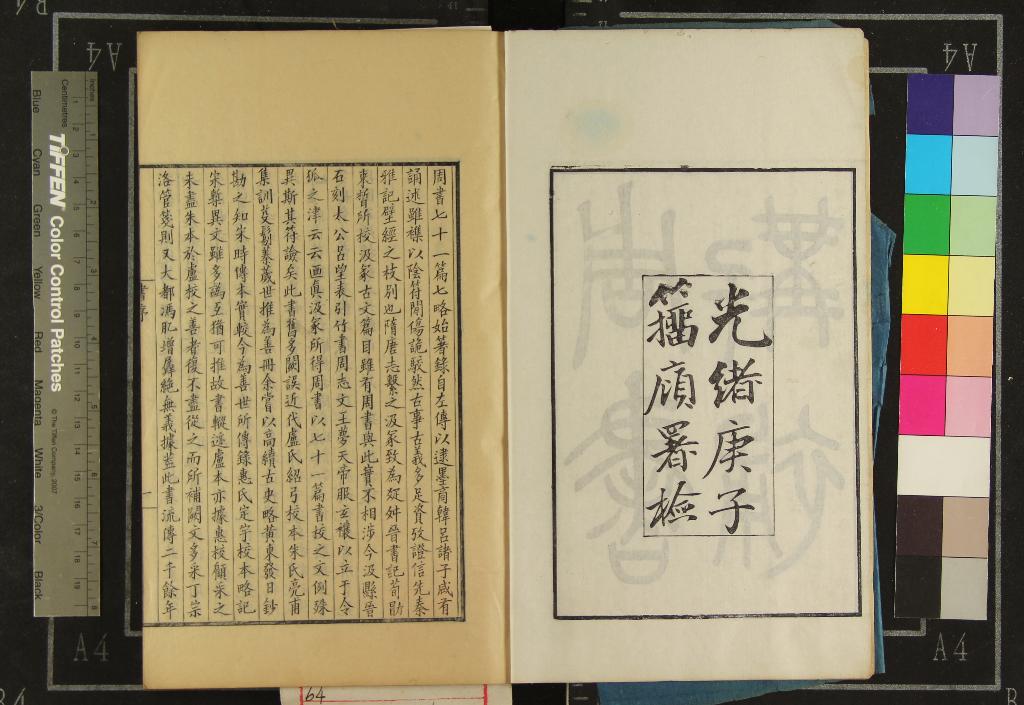 光緒庚子
籒廎署檢
周書七十一篇七略始著錄自左傳以逮墨商韓呂諸子咸有
誦述雖襍以陰符閒傷詭駁然古事古義多足資攷證信先秦
雅記壁經之枝別也隋唐志繫之汲冢致為疏舛晉書記荀勖
束晳所校汲冢古文篇目雖有周書與此實不相涉今汲縣晉
石刻太公呂望表引竹書周志文王夢天帝服玄禳以立于令
狐之津云云画眞汲冢所得周書以七十一篇書校之文例殊
異斯其符譣矣此書舊多闕誤近代盧氏紹弓校本朱氏亮甫
集訓芟鬀蓁薉世推為善冊余嘗以高續古史略黃東發日鈔
勘之知宋時傳本實較今為善世所傳錄惠氏定宇校本略記
宋槧異文雖多譌互猶可推故書輙迹盧本亦據惠校顧采之
未盡朱本於盧校之善者復不盡從之而所補闕文多采丁宗
洛管箋則又大都馮肊增羼絕無義據葢此書流傳二千餘年
書序
一
Inches
Centimetres
TIFFEN Color Control Patches
© The Tiffen Company, 2007
Blue
Cyan
Green
Yellow
Red
Magenta
White
3/Color
Black
A4
A4
A4
A4
64